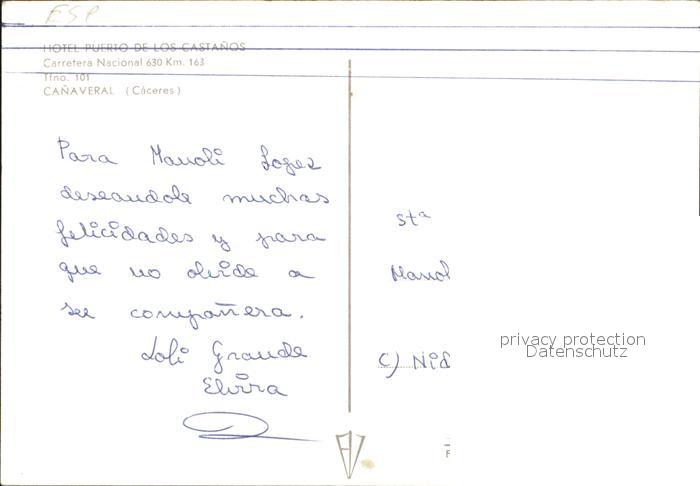 ESP
HOTEL PUERTO DE LOS CASTAÑOS
Carretera Nacional 630 Km. 163
Tfno. 101
CAÑAVERAL (Cáceres)
Para Manoli Lopez
deseandole muchas
felicidades y para
que no olvide a
su compañera.
Loli Grande
Elvira
Stª
Manol
C) Nid
privacy protection
Datenschutz